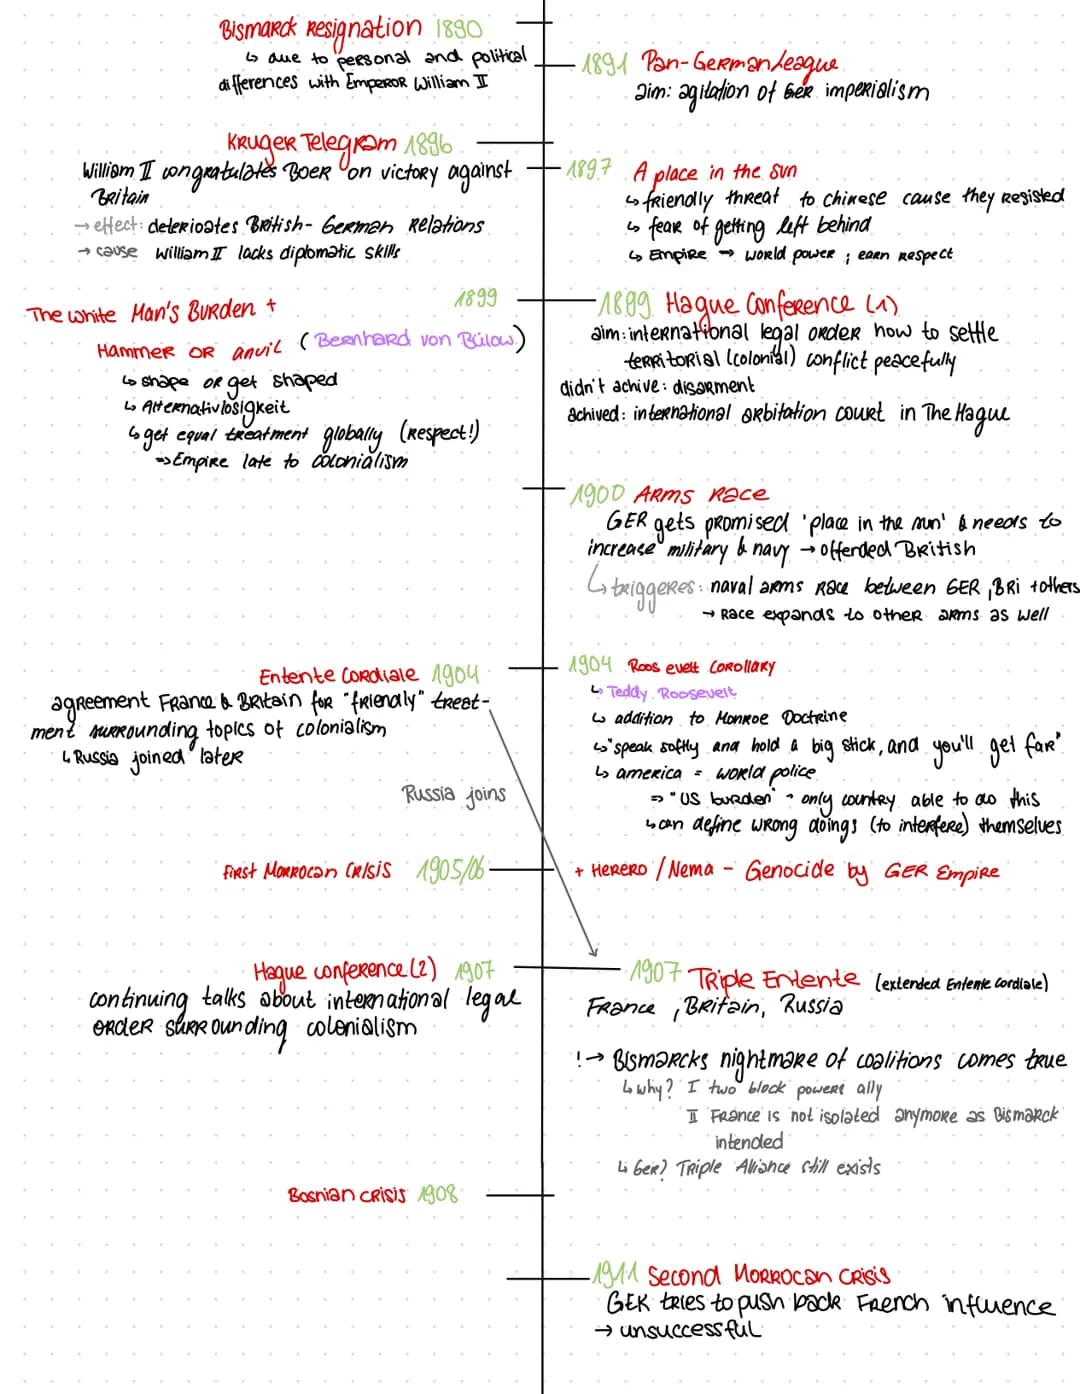 Bismarck Resignation 1890
↳ due to personal and political
differences with Emperor William II
1891 Pan-German League
aim: agitation of Ger imperialism
Kruger Telegram 1896
William II congratulates Boer on victory against
Britain
→ effect: deterioates British-German Relations
→ cause William II lacks diplomatic skills
1897 A place in the sun
↳ friendly threat to chinese cause they resisted
↳ fear of getting left behind
↳ Empire → world power ; earn respect
The White Man's Burden + 1899
Hammer or anvil (Bernhard von Bülow)
↳ shape or get shaped
↳ Alternativlosigkeit
↳ get equal treatment globally (respect!)
⇒ Empire late to colonialism
1899 Hague Conference (1)
aim: international legal order how to settle
territorial (colonial) conflict peacefully
didn't achive: disarment
achived: international arbitation court in The Hague
1900 Arms Race
GER gets promised 'place in the sun' & needs to
increase military & navy → offended British
↳ triggeres: naval arms race between GER, BRI + others
→ Race expands to other arms as well
Entente Cordiale 1904
agreement France & Britain for "friendly" treat-
ment surrounding topics of colonialism
↳ Russia joined later
Russia joins
1904 Roosevelt Corollary
↳ Teddy Roosevelt
↳ addition to Monroe Doctrine
↳ "speak softly and hold a big stick, and you'll get far"
↳ america = world police
⇒ "US burden" → only country able to do this
↳ can define wrong doings (to interfere) themselves
First Morrocan Crisis 1905/06
+ Herero / Nama - Genocide by GER Empire
Hague conference (2) 1907
continuing talks about international legal
order surrounding colonialism
1907 Triple Entente (extended Entente Cordiale)
France, Britain, Russia
! → Bismarcks nightmare of coalitions comes true
↳ why? I two block powers ally
II France is not isolated anymore as Bismarck
intended
↳ Ger? Triple Alliance still exists
Bosnian crisis 1908
1911 Second Morrocan Crisis
GER tries to push back French influence
→ unsuccessful